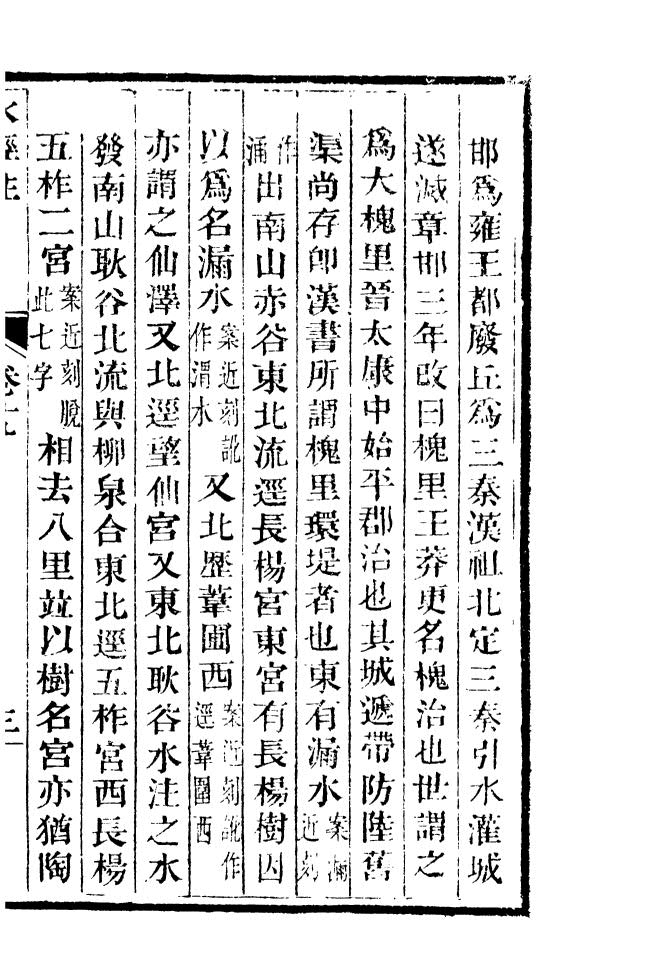 邯爲雍王都廢丘爲三秦漢祖北定三秦引水灌城
遂滅章邯三年改曰槐里王莽更名槐治也世謂之
爲大槐里晉太康中始平郡治也其城遞帶防陸舊
渠尚存卽漢書所謂槐里環堤者也東有漏水案漏近刻
作涌出南山赤谷東北流逕長楊宮東宮有長楊樹因
以爲名漏水案近刻訛作渭水又北歷葦圃西案近刻訛作逕葦圍西
亦謂之仙澤又北逕望仙宮又東北耿谷水注之水
發南山耿谷北流與柳泉合東北逕五柞宮西長楊
五柞二宮案近刻脫此七字相去八里竝以樹名宮亦猶陶
水經注
卷十九
三